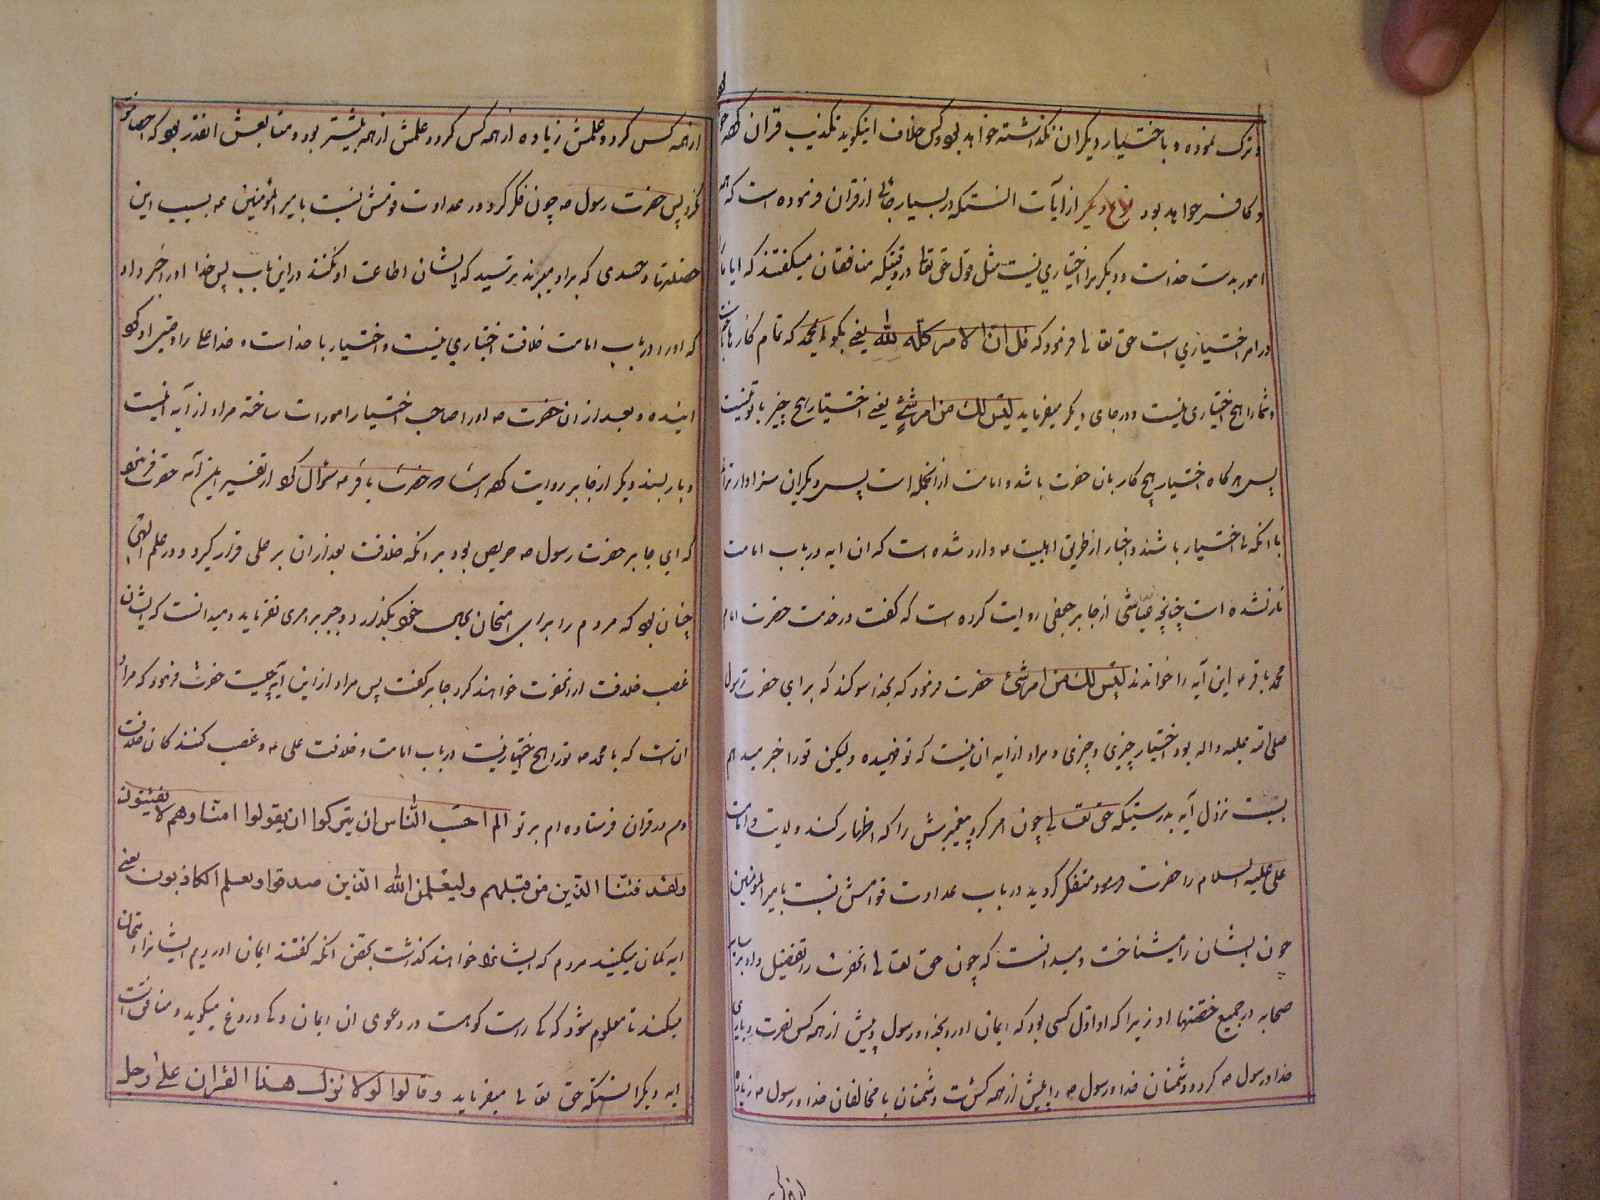 و ترک نموده و باختیار دیگران نگذاشته خواهد بود و کس خلاف اینگوید تکذیب قران کرده
و کافر خواهد بود نوع دیگر از آیات انستکه در بسیار جائی از قران فرموده است که همه
امور بدست خداست و دیگریرا اختیاری نیست مثل قول حق تعا در وقتیکه منافقان میگفتند که ایا ما را
در امر اختیاری است حق تعالی فرمود که قل ان الامر کله لله یعنی بگو ای محمد که تمام کارها با خداست
و شما را هیچ اختیاری نیست و در جای دیگر میفرماید لیس لک من امر شیء یعنی اختیار هیچ چیز با تو نیست
پس هرگاه اختیار هیچ کار بان حضرت باشد و امامت از انجمله است پس دیگران سزاوارتراند
بانکه با اختیار باشند و اخبار از طریق اهلبیت ع وارد شده است که ان ایه در باب امامت
نازل شده است چنانچه عیاشی از جابر جعفی روایت کرده است که گفت در خدمت حضرت امام
محمد باقر ع این آیه را خواندند لیس لک من امر شیء حضرت فرمود که بخدا سوگند که برای حضرت رسول
صلی الله علیه و اله بود اختیار چیزی و چیزی و مراد از ایه ان نیست که تو فهمیده و لیکن تو را خبر میدهم
بسبب نزول آیه بدرستیکه حق تعالی چون امر کرد پیغمبرش را که اظهار کند ولایت و امامت
علی علیه السلام را حضرت رسول متفکر گردید در باب عداوت قومش نسبت بامیر المومنین
چون ایشان را میشناخت و میدانست که چون حق تعالی انحضرت را تفضیل داده بر سایر
صحابه در جمیع خصلتها او زیرا که او اول کسی بود که ایمان اورد بخدا و رسول و پیش از همه کس نصرت و یاری
خدا و رسول ص کرد و دشمنان خدا و رسول ص را پیش از همه کشت و دشمنان با مخالفان خدا و رسول ص زیاده
از همه کس کرد و علمش زیاده از همه کس کرد و علمش از همه بیشتر بود و مناقبش انقدر بود که احصا نتوان
کرد پس حضرت رسول ص چون فکر کرد در عداوت قومش نسبت بامیر المؤمنین ع بسبب این
خصلتها و حسدی که براو میبرند برتسید که ایشان اطاعت او نکنند در این باب پس خدا او را خبر داد
که او را در باب امامت خلافت اختیاری نیست و اختیار با خداست و خدا علی را وصی او کرده
اینده و بعد از ان حضرت ص او را صاحب اختیار امورات ساخته مراد از آیه اینست
و باز بسند دیگر از جابر روایت کرده است از حضرت باقر ع سؤال کرد از تفسیر این آیه حضرت فرمود
که ای جابر حضرت رسول ص حریص بود بر انکه خلافت بعد از ان بر علی قرار گیرد و در علم الهی
چنان بود که مردم را برای امتحان بحال خود بگذارد و جبر بر امری نفرماید و میدانست که ایشان
غصب خلافت از انحضرت خواهند کرد جابر گفت پس مراد از این ایه چیست حضرت فرمود که مراد
ان است که یا محمد ص تو را هیچ اختیار نیست در باب امامت و خلافت علی ع و غصب کنندکان خلافت
و من در قران فرستاده ام بر تو الم احسب الناس ان یترکوا ان یقولوا امنا و هم لا یفتنون
ولقد فتنا الذین من قبلهم ولیعلمن الله الذین صدقوا و یعلم الکاذبون یعنی
ایه گمان میکنید مردم که ایشانرا خواهند گذاشت بمحض انکه گفتند ایمان اوردیم ایشانرا امتحان
میکنند تا معلوم شود که که راست گو است در دعوی ان ایمان و که دروغ میگوید و منافق است
ایه دیگر انستکه حق تعالی میفرماید و قالوا لولا نزل هذا القران علی رجل